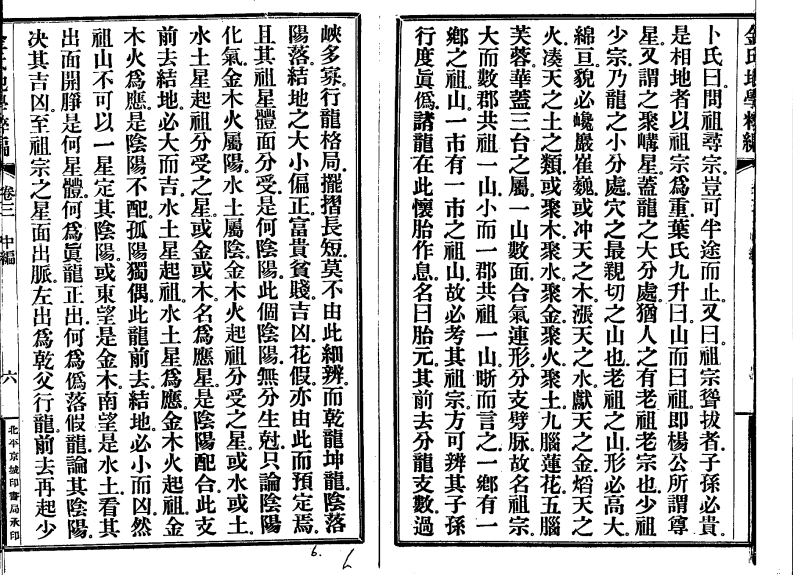 金氏地學粹編
卜氏曰問祖尋宗豈可半途而止又曰祖宗聳拔者子孫必貴
是相地者以祖宗爲重葉氏九升曰山而曰祖即楊公所謂尊
星又謂之聚嶙星蓋龍之大分處猶人之有老祖老宗也少祖
少宗乃龍之小分處穴之最親切之山也老祖之山形必高大
綿亘貌必巉巖崔巍或冲天之木漲天之水獻天之金熖天之
火凑天之土之類或聚木聚水聚金聚火聚土九腦蓮花五腦
芙蓉華蓋三台之屬一山數面合氣連形分支劈脉故名祖宗
大而數郡共祖一山小而一郡共祖一山晰而言之一鄉有一
鄉之祖山一市有一市之祖山故必考其祖宗方可辨其子孫
行度眞僞諸龍在此懷胎作息名曰胎元其前去分龍支數過
峽多寡行龍格局擺摺長短莫不由此細辨而乾龍坤龍陰落
陽落結地之大小偏正富貴貧賤吉凶花假亦由此而預定焉
且其祖星體面分受是何陰陽此個陰陽無分生尅只論陰陽
化氣金木火屬陽水土屬陰金木火起祖分受之星或水或土
水土星起祖分受之星或金或木名爲應星是陰陽配合此支
前去結地必大而吉水土星起祖水土星爲應金木火起祖金
木火爲應是陰陽不配孤陽獨偶此龍前去結地必小而凶然
祖山不可以一星定其陰陽或東望是金木南望是水土看其
出面開睜是何星體何爲眞龍正出何爲僞落假龍論其陰陽
决其吉凶至祖宗之星面出脈左出爲乾父行龍前去再起少
金氏地學粹編
卷三 中編
六
北平京城印書局承印
6.